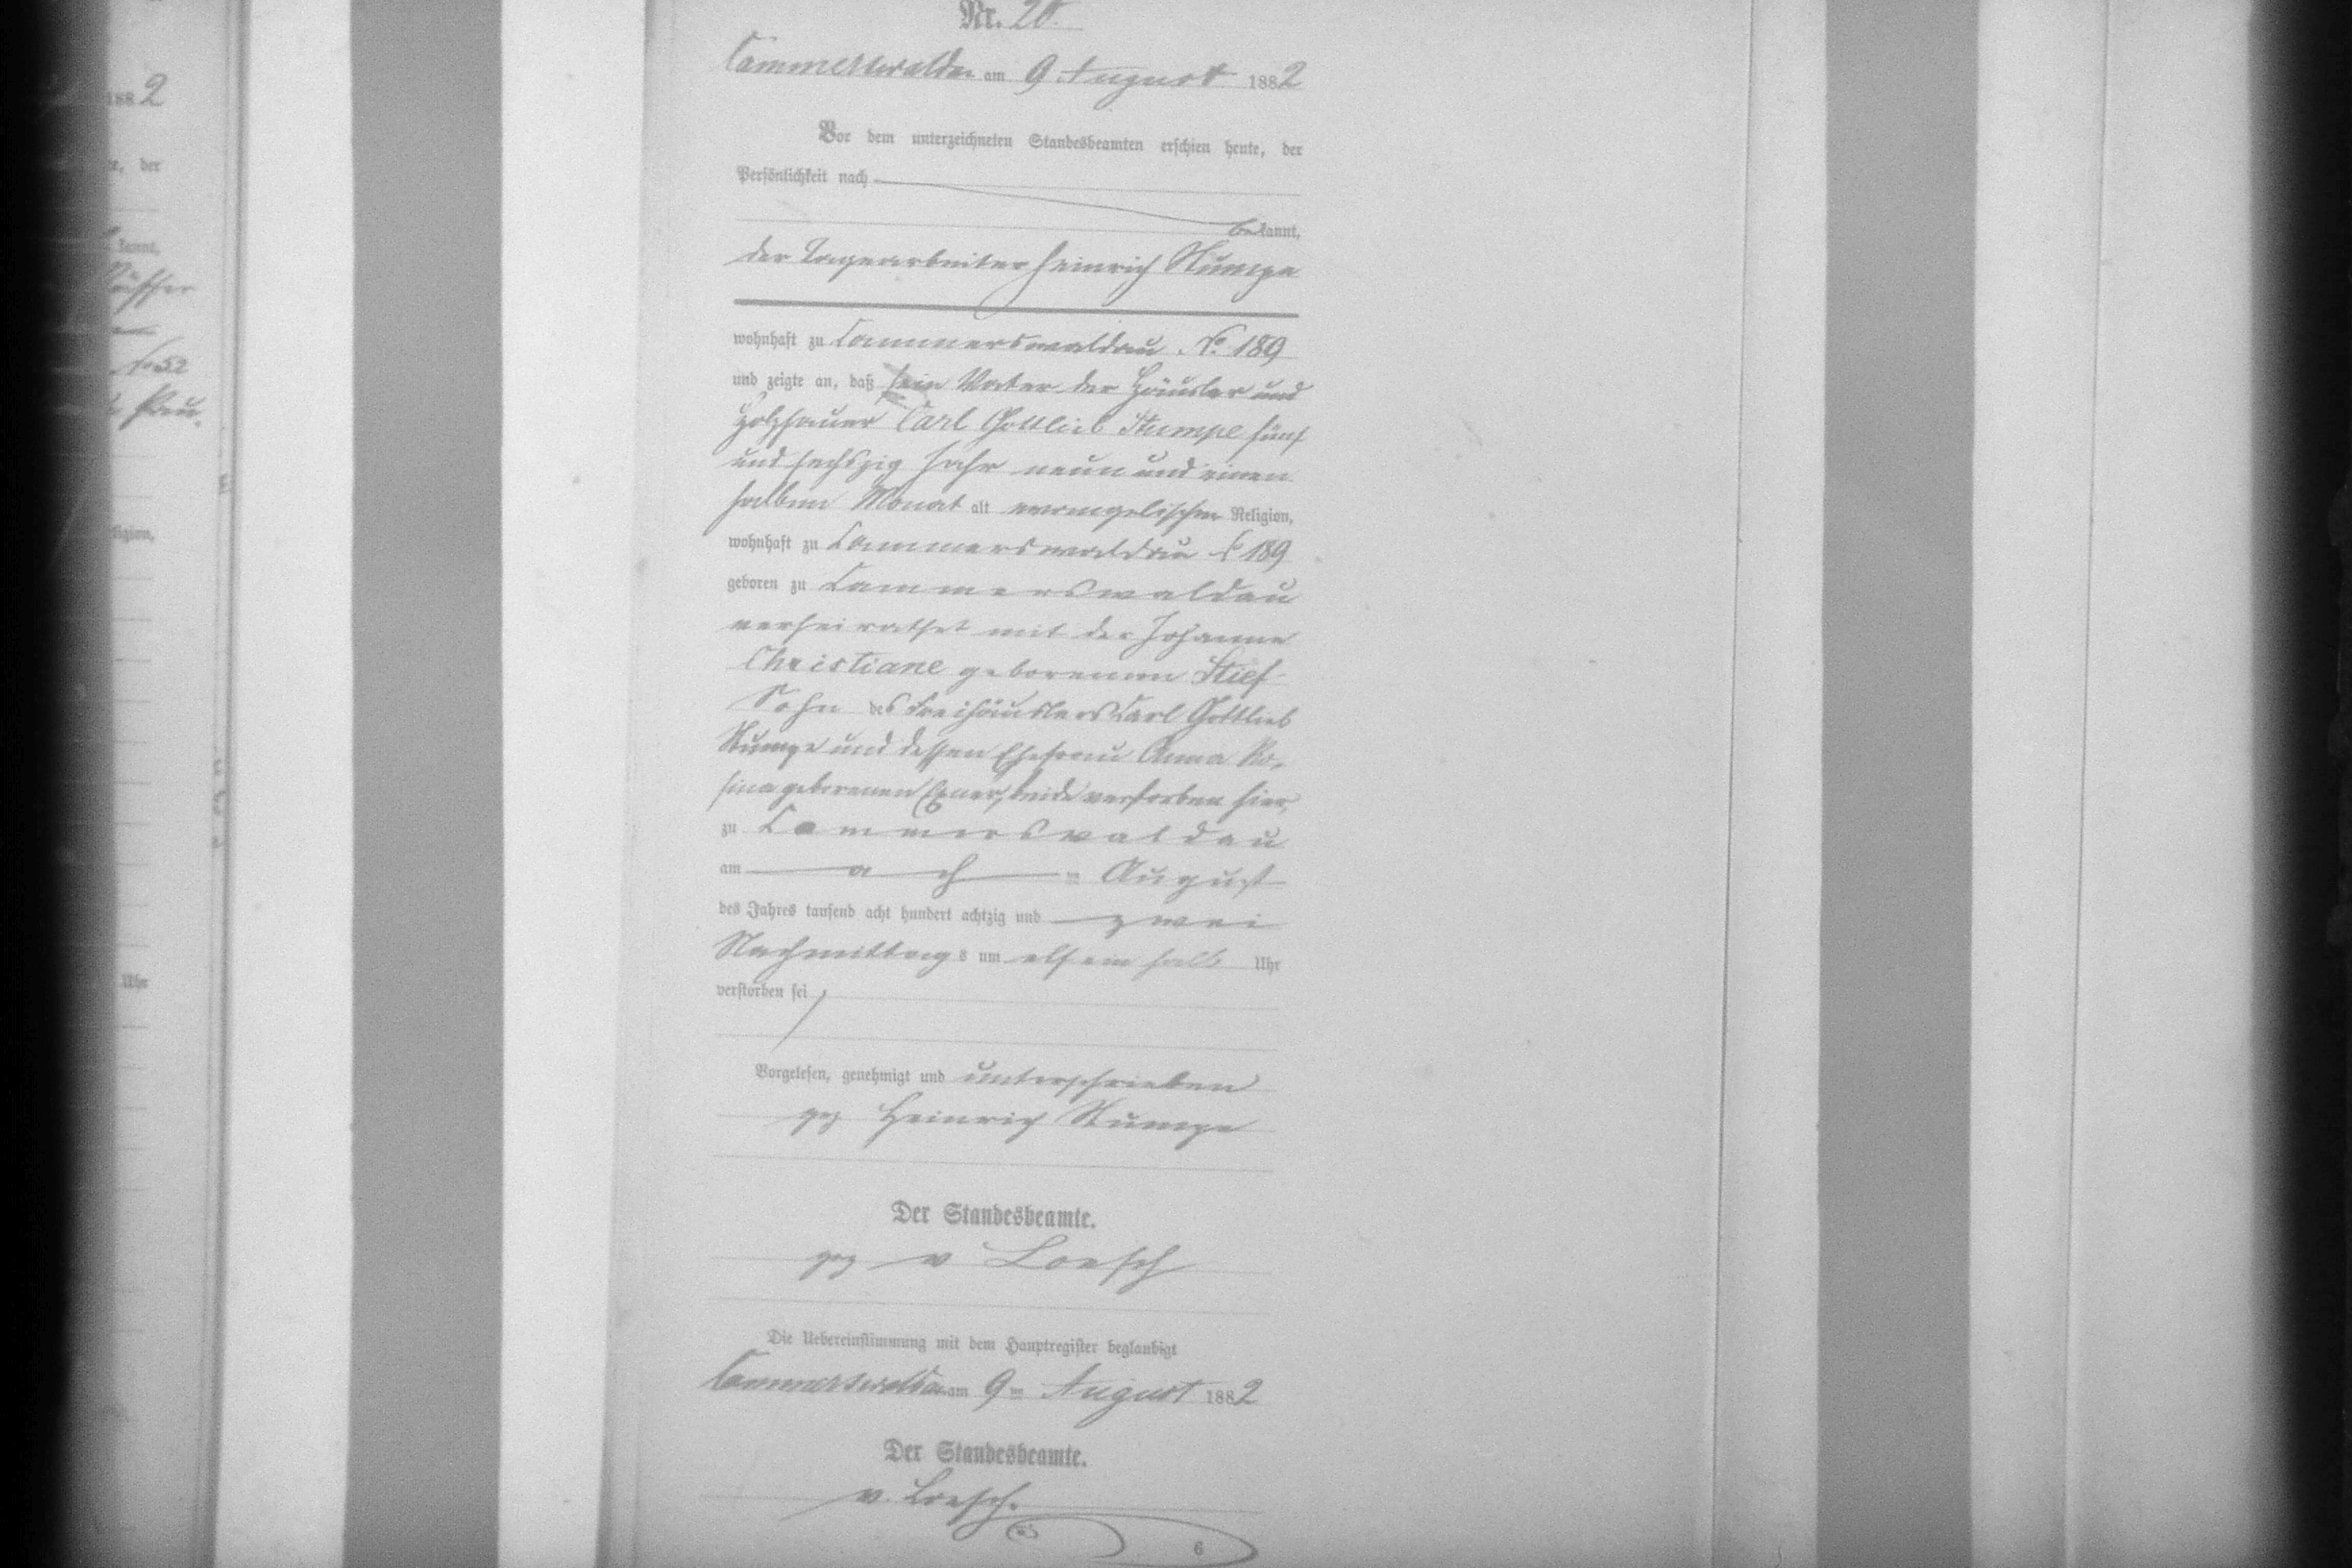 188 2
te, der
kannt,
No 52
ligion,
Uhr
Nr. 20.
Cammerswaldau am 9 August 1882
Vor dem unterzeichneten Standesbeamten erschien heute, der
Persönlichkeit nach
bekannt,
der Tagearbeiter Heinrich Stumpe
wohnhaft zu Cammerswaldau No. 189
und zeigte an, daß sein Vater der Häusler und
Holzhauer Carl Gottlieb Stumpe fünf
und sechszig Jahr neun und einen
halben Monat alt evangelischer Religion,
wohnhaft zu Cammerswaldau No 189
geboren zu Cammerswaldau
verheirathet mit der Johanne
Christiane geborenen Stief
Sohn des Freihäuslers Carl Gottlieb
Stumpe und dessen Ehefrau Anna Ro-
sina geborenen Exner, beide verstorben hier,
zu Cammerswaldau
am ach ten August
des Jahres tausend acht hundert achtzig und zwei
Nachmittags um elf ein halb Uhr
verstorben sei
Vorgelesen, genehmigt und unterschrieben
gez Heinrich Stumpe
Der Standesbeamte.
gez v Loesch
Die Uebereinstimmung mit dem Hauptregister beglaubigt
Cammerswaldau am 9ten August 1882
Der Standesbeamte.
v. Loesch.
6